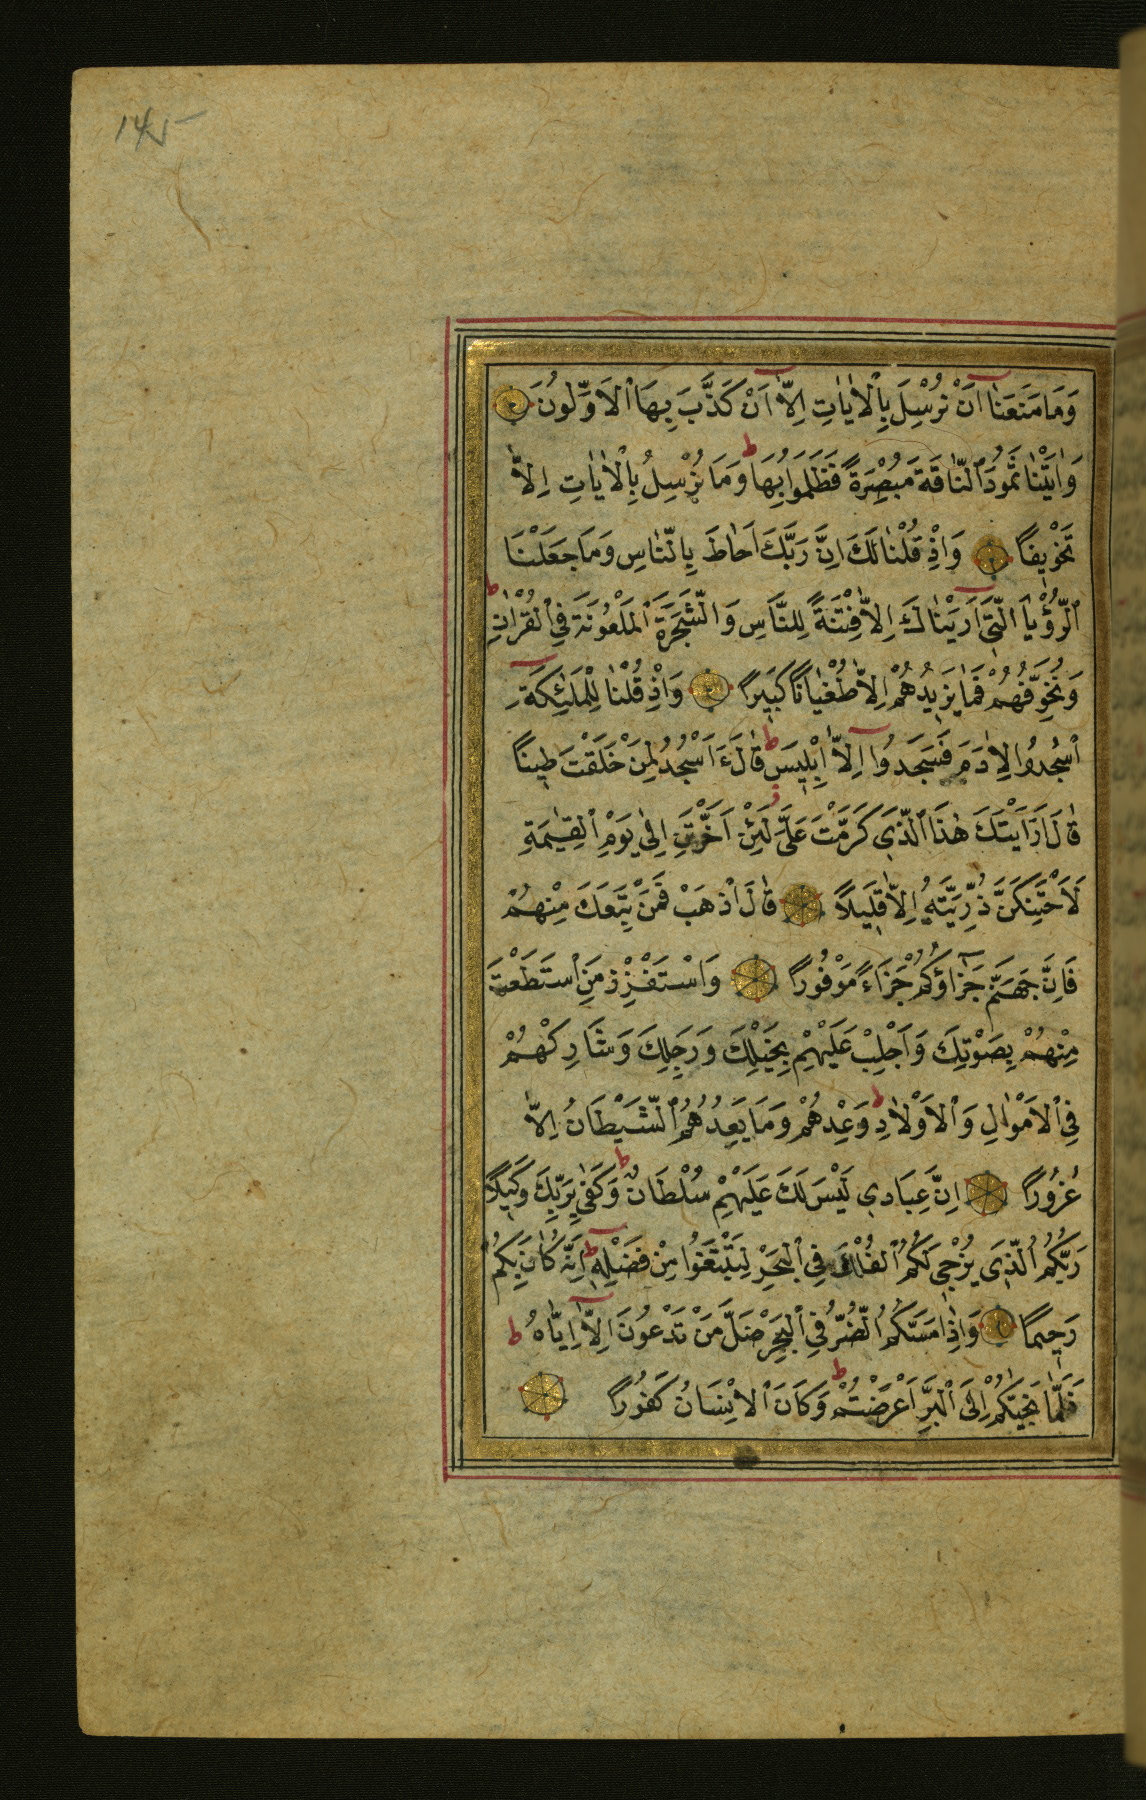 ١٤٧
وَمَا مَنَعَنَٓا اَنْ نُرْسِلَ بِالْاٰيَاتِ اِلَّٓا اَنْ كَذَّبَ بِهَا الْاَوَّلُونَ
وَاٰتَيْنَا ثَمُودَ النَّاقَةَ مُبْصِرَةً فَظَلَمُوا بِهَا ط وَمَا نُرْسِلُ بِالْاٰيَاتِ اِلَّا
تَخْوِيفًا وَاِذْ قُلْنَا لَكَ اِنَّ رَبَّكَ اَحَاطَ بِالنَّاسِ وَمَا جَعَلْنَا
الرُّؤْيَا الَّتِٓى اَرَيْنَاكَ اِلَّا فِتْنَةً لِلنَّاسِ وَالشَّجَرَةَ الْمَلْعُونَةَ فِي الْقُرْاٰنِ ط
وَنُخَوِّفُهُمْ فَمَا يَزِيدُهُمْ اِلَّا طُغْيَانًا كَبِيرًا وَاِذْ قُلْنَا لِلْمَلٰٓئِكَةِ
اسْجُدُوا لِاٰدَمَ فَسَجَدُٓوا اِلَّٓا اِبْلِيسَ ط قَالَ ءَاَسْجُدُ لِمَنْ خَلَقْتَ طِينًا
قَالَ اَرَاَيْتَكَ هٰذَا الَّذِي كَرَّمْتَ عَلَيَّ لَئِنْ اَخَّرْتَنِ اِلٰى يَوْمِ الْقِيٰمَةِ
لَاَحْتَنِكَنَّ ذُرِّيَّتَهُ اِلَّا قَلِيلًا قَالَ اذْهَبْ فَمَنْ تَبِعَكَ مِنْهُمْ
فَاِنَّ جَهَنَّمَ جَزَٓاؤُكُمْ جَزَاءً مَوْفُورًا وَاسْتَفْزِزْ مَنِ اسْتَطَعْتَ
مِنْهُمْ بِصَوْتِكَ وَاَجْلِبْ عَلَيْهِمْ بِخَيْلِكَ وَرَجِلِكَ وَشَارِكْهُمْ
فِي الْاَمْوَالِ وَالْاَوْلَادِ وَعِدْهُمْ ط وَمَا يَعِدُهُمُ الشَّيْطَانُ اِلَّا
غُرُورًا اِنَّ عِبَادِي لَيْسَ لَكَ عَلَيْهِمْ سُلْطَانٌ ط وَكَفٰى بِرَبِّكَ وَكِيلًا
رَبُّكُمُ الَّذِي يُزْجِي لَكُمُ الْفُلْكَ فِي الْبَحْرِ لِتَبْتَغُوا مِنْ فَضْلِهِ ط اِنَّهُ كَانَ بِكُمْ
رَحِيمًا وَاِذَا مَسَّكُمُ الضُّرُّ فِي الْبَحْرِ ضَلَّ مَنْ تَدْعُونَ اِلَّٓا اِيَّاهُ ط
فَلَمَّا نَجّٰيكُمْ اِلَى الْبَرِّ اَعْرَضْتُمْ ط وَكَانَ الْاِنْسَانُ كَفُورًا